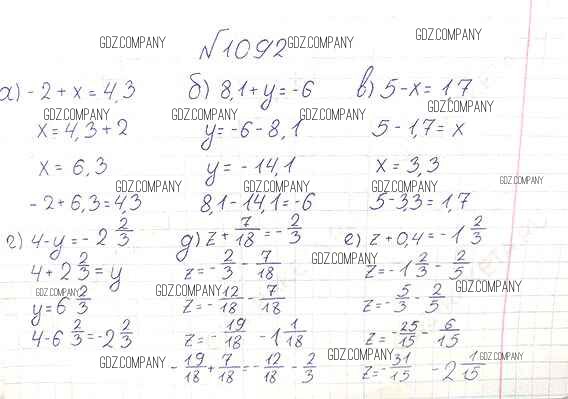 GDZ.COMPANY №1092 GDZ.COMPANY GDZ.COMPANY
а) -2 + x = 4,3 б) 8,1 + y = -6 в) 5 - x = 1,7
GDZ.COMPANY GDZ.COMPANY GDZ.COMPANY GDZ.COMPANY
x = 4,3 + 2 y = -6 - 8,1 5 - 1,7 = x
x = 6,3 y = -14,1 x = 3,3
GDZ.COMPANY GDZ.COMPANY GDZ.COMPANY GDZ.COMPANY
-2 + 6,3 = 4,3 8,1 - 14,1 = -6 5 - 3,3 = 1,7
г) 4 - y = -2 2/3 д) z + 7/18 = -2/3 е) z + 0,4 = -1 2/3
GDZ.COMPANY
4 + 2 2/3 = y z = -2/3 - 7/18 z = -1 2/3 - 2/5
GDZ.COMPANY GDZ.COMPANY GDZ.COMPANY
y = 6 2/3 z = -12/18 - 7/18 z = -5/3 - 2/5
4 - 6 2/3 = -2 2/3 z = -19/18 - 1 1/18 z = -25/15 - 6/15
GDZ.COMPANY GDZ.COMPANY GDZ.COMPANY
-19/18 + 7/18 = -12/18 - 2/3 z = -31/15 - 2 1/15